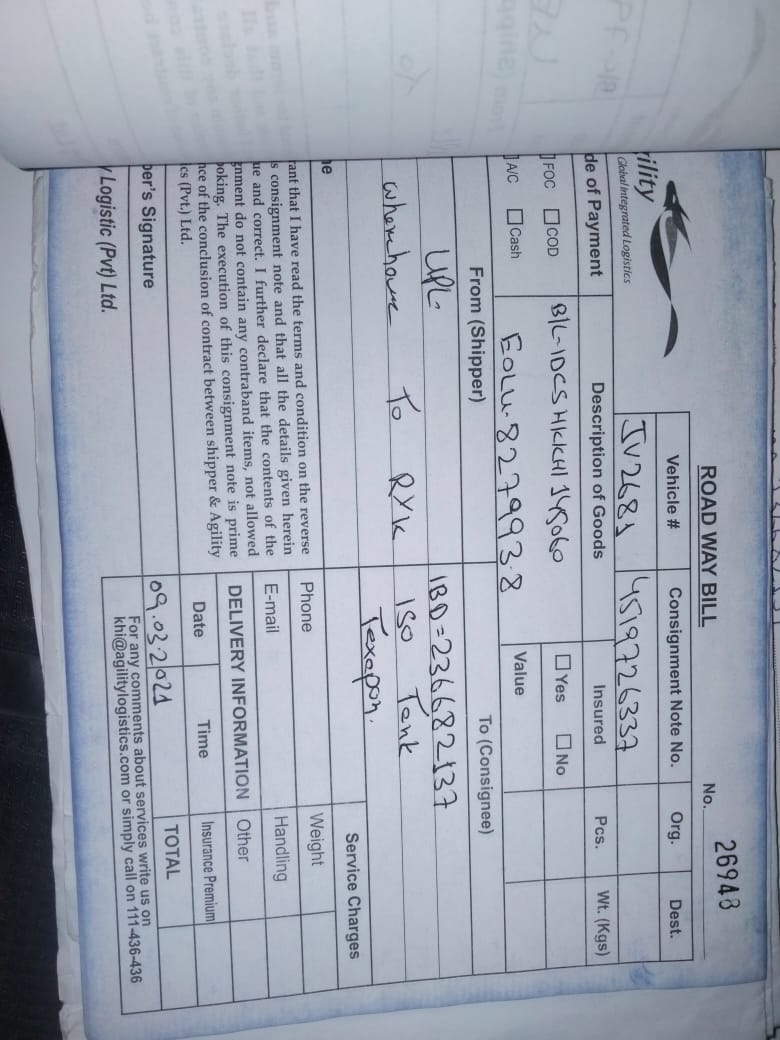 ROAD WAY BILL
No. 26948
ility
Global Integrated Logistics
Vehicle #
Consignment Note No.
Org.
Dest.
JV2681
4519726337
de of Payment
Description of Goods
Insured
Pcs.
Wt. (Kgs)
FOC
COD
B/L-IDCSHKKHI 145060
Yes
No
A/C
Cash
EOLU-827993-8
Value
From (Shipper)
To (Consignee)
UPL
IBD=236682137
Wherehouse To RYK
ISO Tank
Texapon.
Service Charges
ne
Phone
Weight
rant that I have read the terms and condition on the reverse
s consignment note and that all the details given herein
ue and correct. I further declare that the contents of the
gnment do not contain any contraband items, not allowed
ooking. The execution of this consignment note is prime
nce of the conclusion of contract between shipper & Agility
ics (Pvt.) Ltd.
E-mail
Handling
DELIVERY INFORMATION
Other
Date
Time
Insurance Premium
09.03.2021
TOTAL
per's Signature
For any comments about services write us on
khi@agilitylogistics.com or simply call on 111-436-436
y Logistic (Pvt) Ltd.